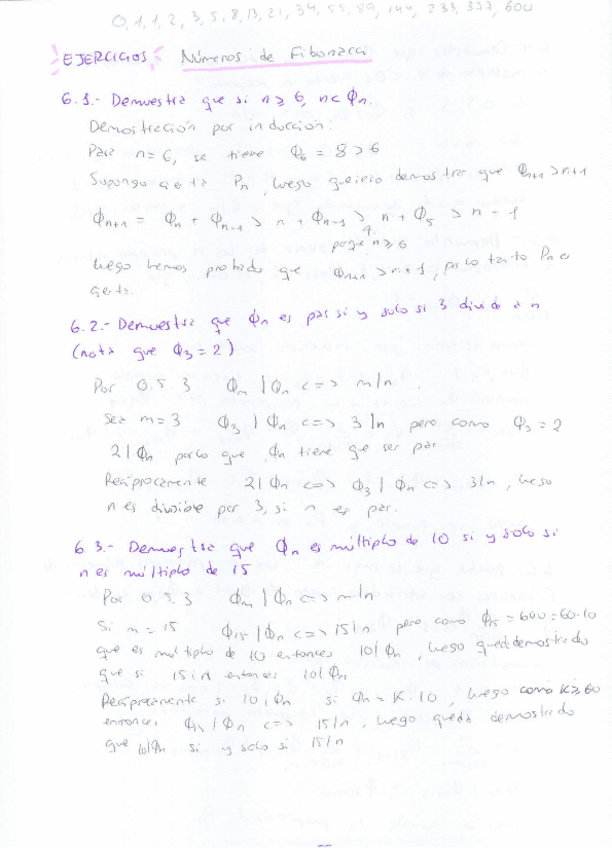 0, 1, 1, 2, 3, 5, 8, 13, 21, 34, 55, 89, 144, 233, 377, 600
EJERCICIOS Números de Fibonacci
6.1.- Demuestra que si n ≥ 6, n < Φn.
Demostración por inducción:
Para n=6, se tiene Φ6 = 8 > 6
Supongo cierta Pn, luego quiero demostrar que Φn+1 > n+1
Φn+1 = Φn + Φn-1 > n + Φn-1 > n + Φ5 > n - 1
porque n ≥ 6
Luego hemos probado que Φn+1 > n+1, por lo tanto Pn es
cierta.
6.2.- Demuestra que Φn es par si y solo si 3 divide a n
(nota que Φ3 = 2)
Por 0.5.3 Φm | Φn <=> m | n.
Sea m = 3 Φ3 | Φn <=> 3 | n pero como Φ3 = 2
2 | Φn por lo que Φn tiene que ser par
Recíprocamente 2 | Φn <=> Φ3 | Φn <=> 3 | n, luego
n es divisible por 3, si n es par.
6.3.- Demuestra que Φn es múltiplo de 10 si y solo si
n es múltiplo de 15
Por 0.5.3 Φm | Φn <=> m | n
Si m = 15 Φ15 | Φn <=> 15 | n pero como Φ15 = 600 = 60·10
que es multiplo de 10 entonces 10 | Φn, luego queda demostrado
que si 15 | n entonces 10 | Φn
Recíprocamente si 10 | Φn si Φn = K·10, luego como K ≥ 60
entonces Φ15 | Φn <=> 15 | n, luego queda demostrado
que 10 | Φn si y solo si 15 | n